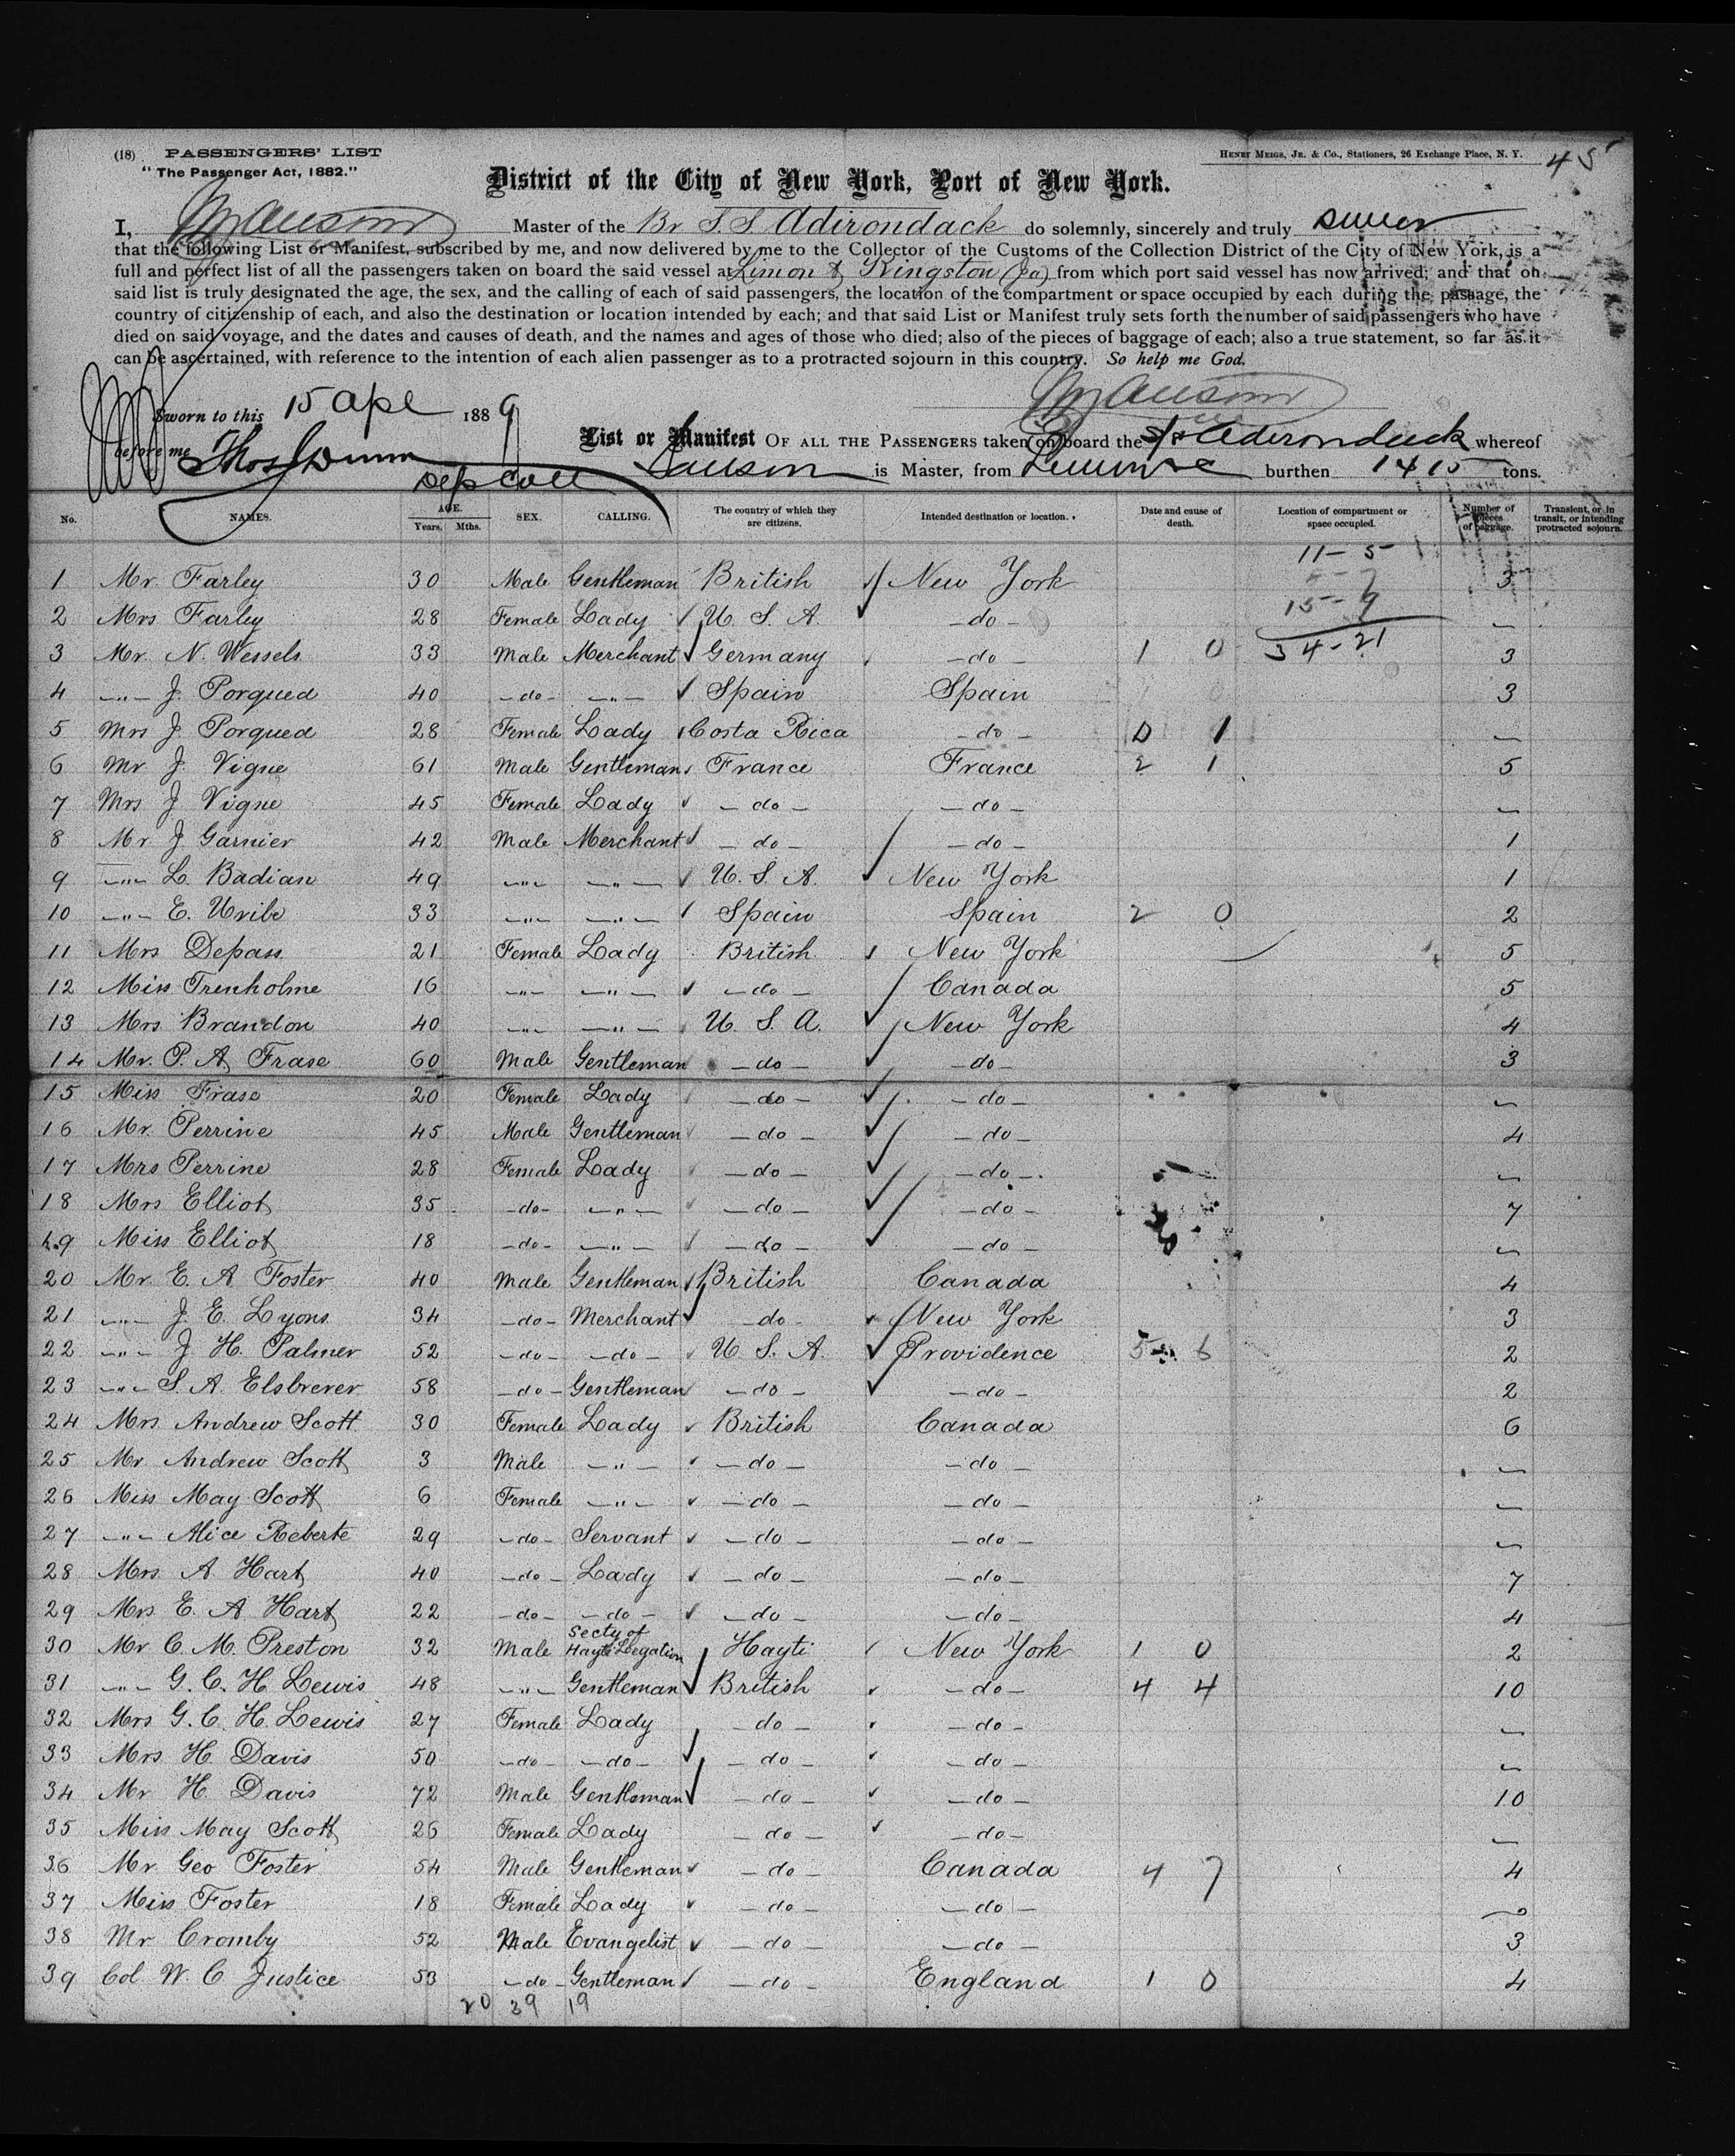 (18) PASSENGERS' LIST
"The Passenger Act, 1882."
HENRY MEIGS, JR. & CO., Stationers, 26 Exchange Place, N. Y.
45
District of the City of New York, Port of New York.
I, Master of the Br S. S Adirondack do solemnly, sincerely and truly swear
that the following List or Manifest, subscribed by me, and now delivered by me to the Collector of the Customs of the Collection District of the City of New York, is a
full and perfect list of all the passengers taken on board the said vessel at Limon & Kingston (Ja) from which port said vessel has now arrived; and that on
said list is truly designated the age, the sex, and the calling of each of said passengers, the location of the compartment or space occupied by each during the passage, the
country of citizenship of each, and also the destination or location intended by each; and that said List or Manifest truly sets forth the number of said passengers who have
died on said voyage, and the dates and causes of death, and the names and ages of those who died; also of the pieces of baggage of each; also a true statement, so far as it
can be ascertained, with reference to the intention of each alien passenger as to a protracted sojourn in this country. So help me God.
Sworn to this 15 Apl 1889
before me Thos Dunn
Dep Coll
List or Manifest OF ALL THE PASSENGERS taken on board the SS Adirondack whereof
Sansom is Master, from burthen 1415 tons.
No. NAMES. AGE. Years. Mths. SEX. CALLING. The country of which they are citizens. Intended destination or location. Date and cause of death. Location of compartment or space occupied. Number of pieces of baggage. Transient, or in transit, or intending protracted sojourn.
11-5
1 Mr. Farley 30 Male Gentleman British New York 5-7 3
15-9
2 Mrs Farley 28 Female Lady U. S. A. -do- -
34-21
3 Mr. N. Wessels 33 Male Merchant Germany -do- 1 0 3
4 -"- J. Porqued 40 -do- -"- Spain Spain 3
5 Mrs J. Porqued 28 Female Lady Costa Rica -do- 0 1 -
6 Mr J. Vigne 61 Male Gentleman France France 2 1 5
7 Mrs J Vigne 45 Female Lady -do- -do- -
8 Mr J. Garnier 42 Male Merchant -do- -do- 1
9 -"- L. Badian 49 -"- -"- U. S. A. New York 1
10 -"- E. Uribe 33 -"- -"- Spain Spain 2 0 2
11 Mrs Depass 21 Female Lady British New York 5
12 Miss Trenholme 16 -"- -"- -do- Canada 5
13 Mrs Brandon 40 -"- -"- U. S. A. New York 4
14 Mr. P. A. Frase 60 Male Gentleman -do- -do- 3
15 Miss Frase 20 Female Lady -do- -do- -
16 Mr. Perrine 45 Male Gentleman -do- -do- 4
17 Mrs Perrine 28 Female Lady -do- -do- -
18 Mrs Elliot 35 -do- -"- -do- -do- 7
19 Miss Elliot 18 -do- -"- -do- -do- -
20 Mr. E. A Foster 40 Male Gentleman British Canada 4
21 -"- J. E. Lyons 34 -do- Merchant -do- New York 3
22 -"- J. H. Palmer 52 -do- -do- U. S. A. Providence 5 6 2
23 -"- S. A. Elsbrever 58 -do- Gentleman -do- -do- 2
24 Mrs Andrew Scott 30 Female Lady British Canada 6
25 Mr Andrew Scott 3 Male -"- -do- -do- -
26 Miss May Scott 6 Female -"- -do- -do- -
27 -"- Alice Reberte 29 -do- Servant -do- -do- -
28 Mrs. A Hart 40 -do- Lady -do- -do- 7
29 Mrs E. A Hart 22 -do- -do- -do- -do- 4
30 Mr C. M. Preston 32 Male Secty of Hayti Legation Hayti New York 1 0 2
31 -"- G. C. H Lewis 48 -"- Gentleman British -do- 4 4 10
32 Mrs G. C. H. Lewis 27 Female Lady -do- -do- -
33 Mrs H. Davis 50 -do- -do- -do- -do- -
34 Mr H. Davis 72 Male Gentleman -do- -do- 10
35 Miss May Scott 26 Female Lady -do- -do- -
36 Mr Geo Foster 54 Male Gentleman -do- Canada 4 7 4
37 Miss Foster 18 Female Lady -do- -do- -
38 Mr Cromby 52 Male Evangelist -do- -do- 3
39 Col W. C Justice 53 -do- Gentleman -do- England 1 0 4
20 39 19